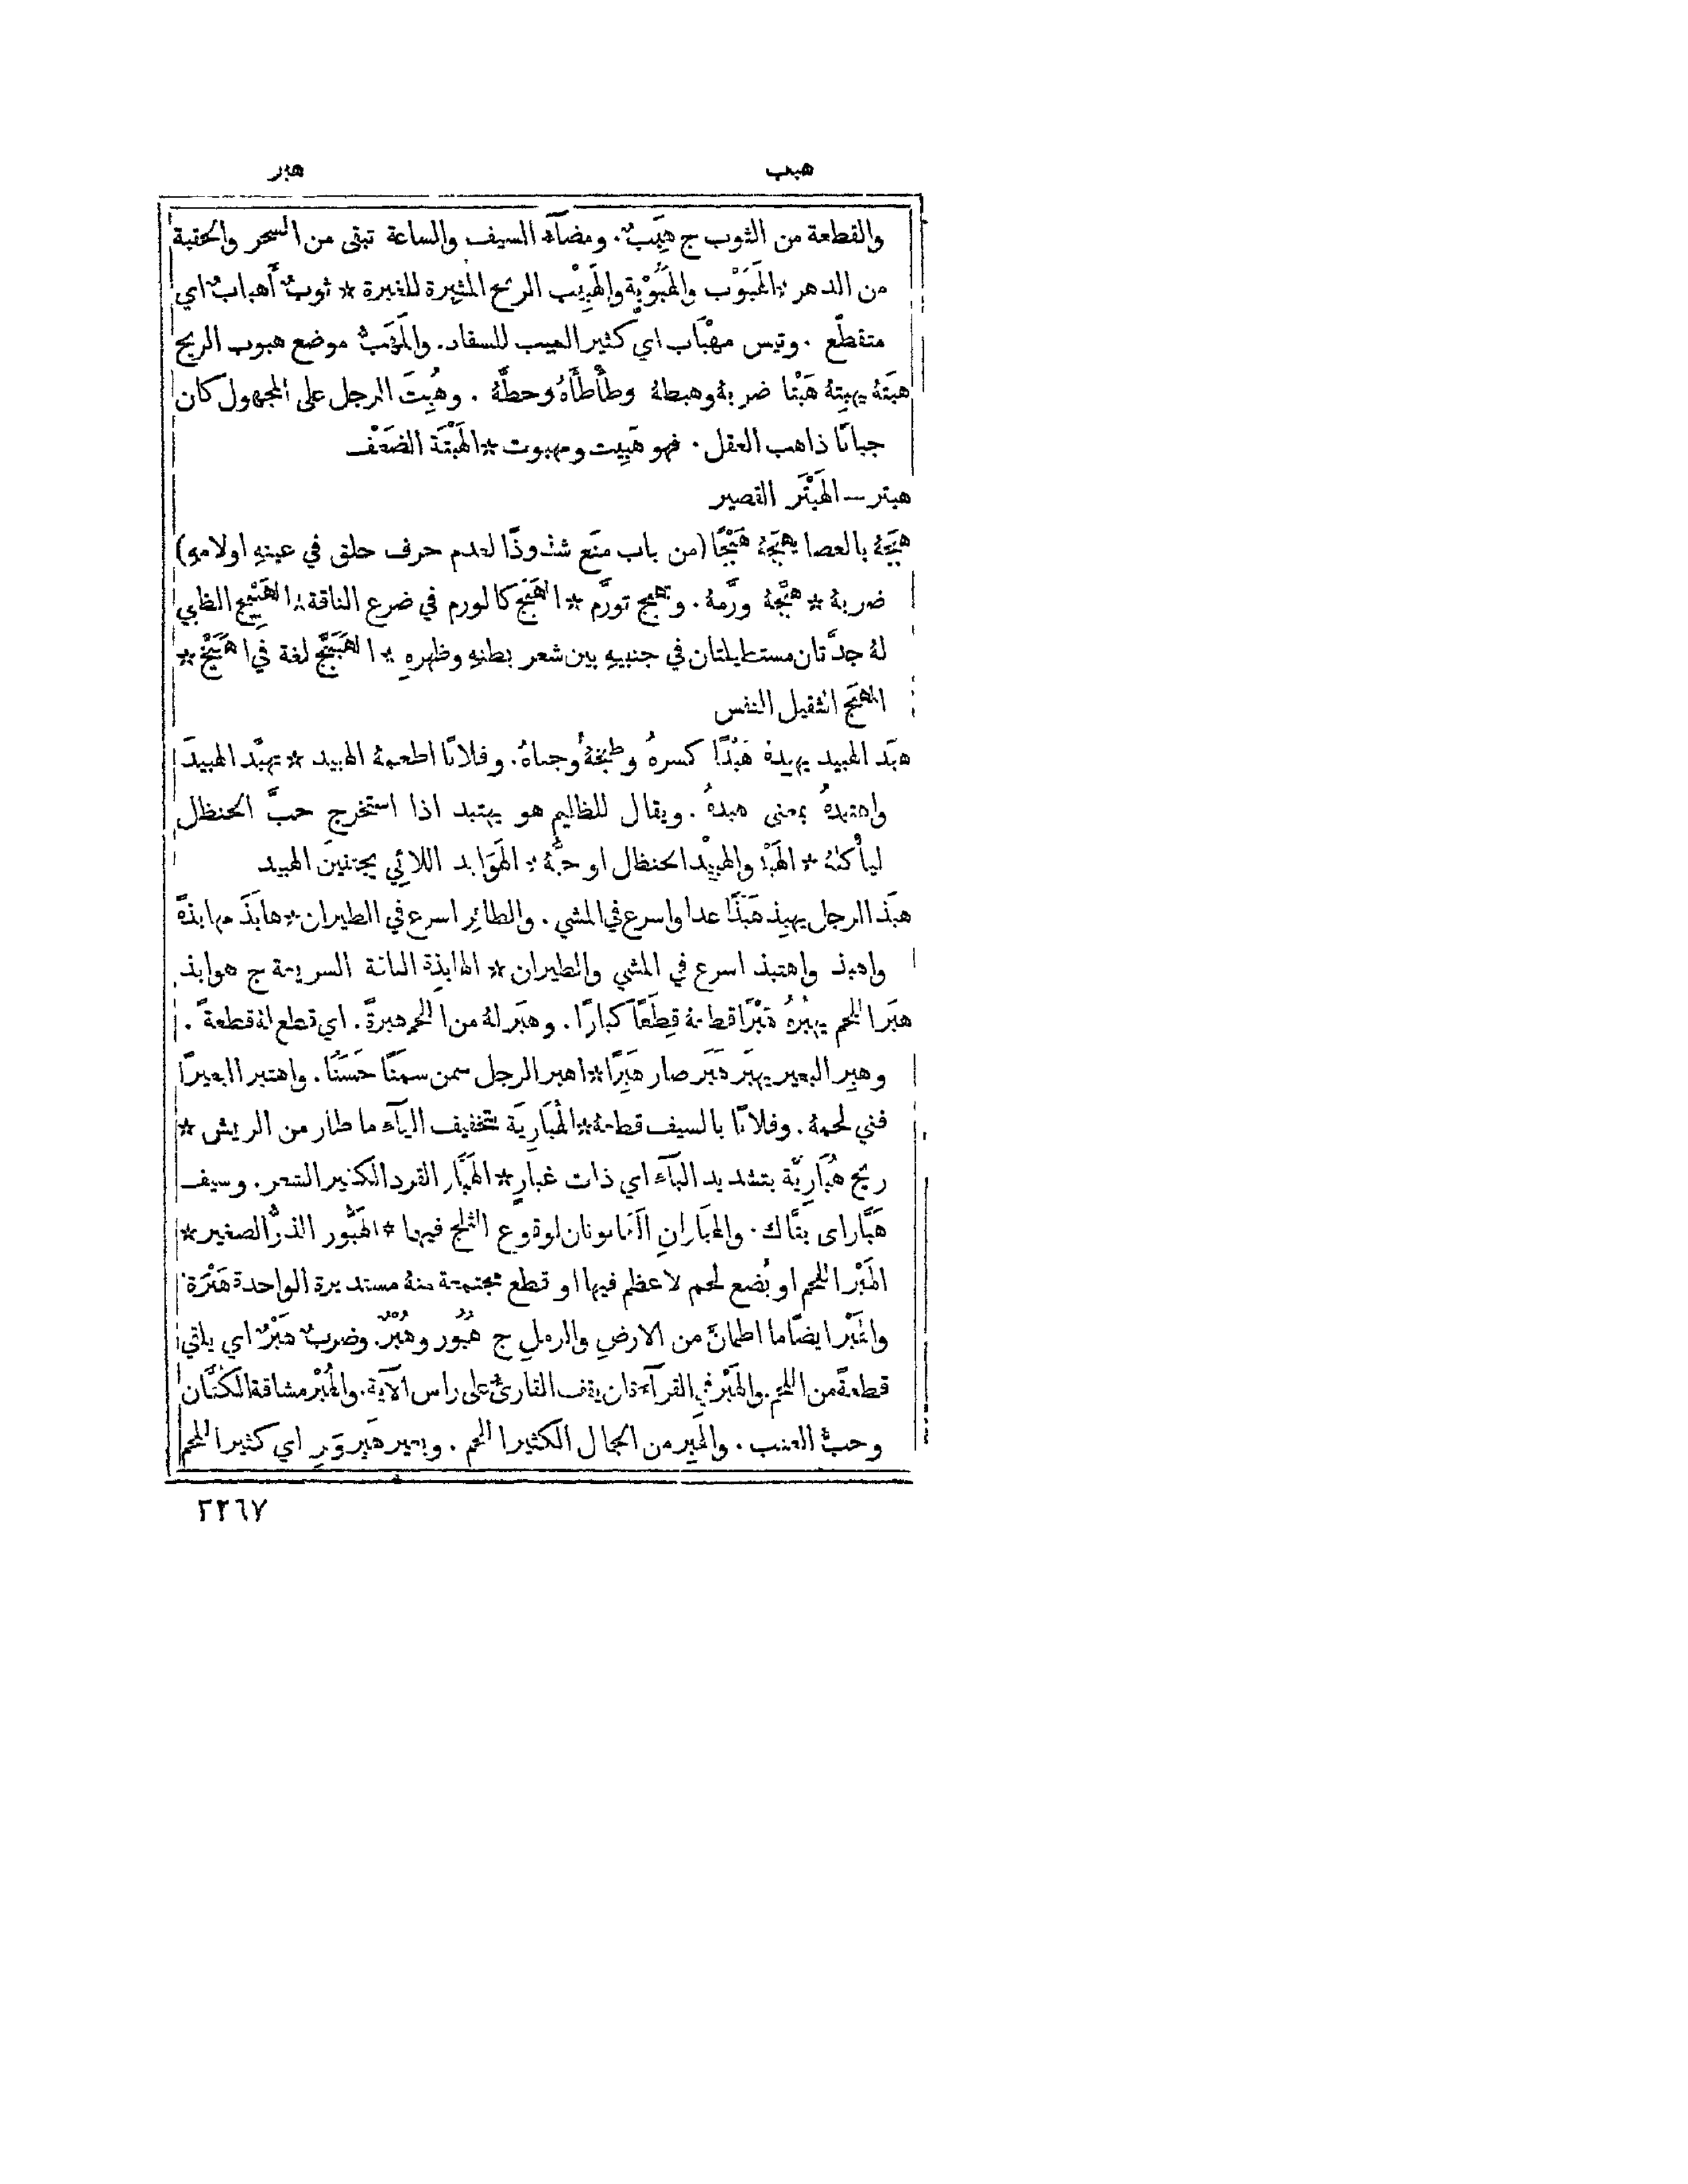 هبب هبر
والقطعة من الثوب ج هِبَبٌ. ومضآء السيف والساعة تبقى من السحر والحقبة
من الدهر * الهَبُوْب والهَبُوْبة والهَبِيْب الريح المثيرة للغبرة * ثوبٌ أَهبابٌ اي
متقطّع . وتيس مهْبَاب اي كثير الهبيب للسفاد. والمَهَبُّ موضع هبوب الريح
هبَتهُ يهبِتهُ هَبْتا ضربهُ وهبطهُ وطأْطأَهُ وحطَّهُ . وهُبِتَ الرجل على المجهول كان
جبانًا ذاهب العقل . فهو هَبِيت ومهبوت * الهَبْتَة الضَعْف
هبتر – الهَبْتَر القصير
هبَجهُ بالعصا يهبَجهُ هَبْجًا (من باب منَع شذوذًا لعدم حرف حلق في عينهِ او لامهِ)
ضربهُ * هبَّجهُ ورَّمهُ . وتهبج تورَّم * الهَبَج كالورم في ضرع الناقة * الهَبِيْج الظبي
لهُ جدَّتان مستطيلتان في جنبيهِ بين شعر بطنهِ وظهرهِ * الهَبَيَّج لغة في الهَبَيَّخ *
المهبَّج الثقيل النفس
هبَد الهبيد يهبِدهُ هَبْدًا كسرهُ وطبخهُ وجناهُ. وفلانًا اطعمهُ الهبيد * تهبَّد الهبيدَ
واهتبدهُ بمعنى هبدهُ . ويقال للظليم هو يهتبد اذا استخرج حبَّ الحنظل
ليأكلهُ * الهَبْد والهبِيْد الحنظل او حبُّهُ * الهَوَابد اللائي يجتنينَ الهبيد
هبَذ الرجل يهبِذ هَبْذًا عدا واسرع في المشي . والطائر اسرع في الطيران * هابَذَ مهابذةً
واهبذ واهتبذ اسرع في المشي والطيران * الهابِذة الناقة السريعة ج هوابذ
هبَر اللحم يهبُرُهُ هَبْرًا قطعهُ قِطَعًا كبارًا. وهبَر لهُ من اللحم هبرةً. اي قطع لهُ قطعةً .
وهبِر البعير يهبَر هَبَر صار هَبِرًا * اهبر الرجل سمن سمَنًا حَسَنًا. واهتبر البعيرُ
فني لحمهُ. وفلانًا بالسيف قطعهُ * الهُبَارِيَة بتخفيف اليآء ما طار من الريش *
ريح هُبَارِيَّة بتشديد اليآء اي ذات غبارٍ * الهَبَّار القرد الكثير الشعر. وسيف
هَبَّار اي بتَّاك. والهَبَارانِ الكانونان لوقوع الثلج فيهما * الهَبُّور الذرُّ الصغير *
الهَبْر اللحم او بُضَع لحم لا عظم فيها او قطع مجتمعة منهُ مستديرة الواحدة هَبْرَة
والهَبْر ايضًا ما اطمأنَّ من الارض والرمل ج هُبُور وهُبْرٌ. وضربٌ هَبْرٌ اي يلقي
قطعةً من اللحم. والهَبْر في القرآءة ان يقف القارئُ على راس الآية. والهُبْر مشاقة الكَتَّان
وحبُّ العنب. والهَبِر من الجمال الكثير اللحم . وبعير هَبِر وَبِر اي كثير اللحم
٢٢٦٧